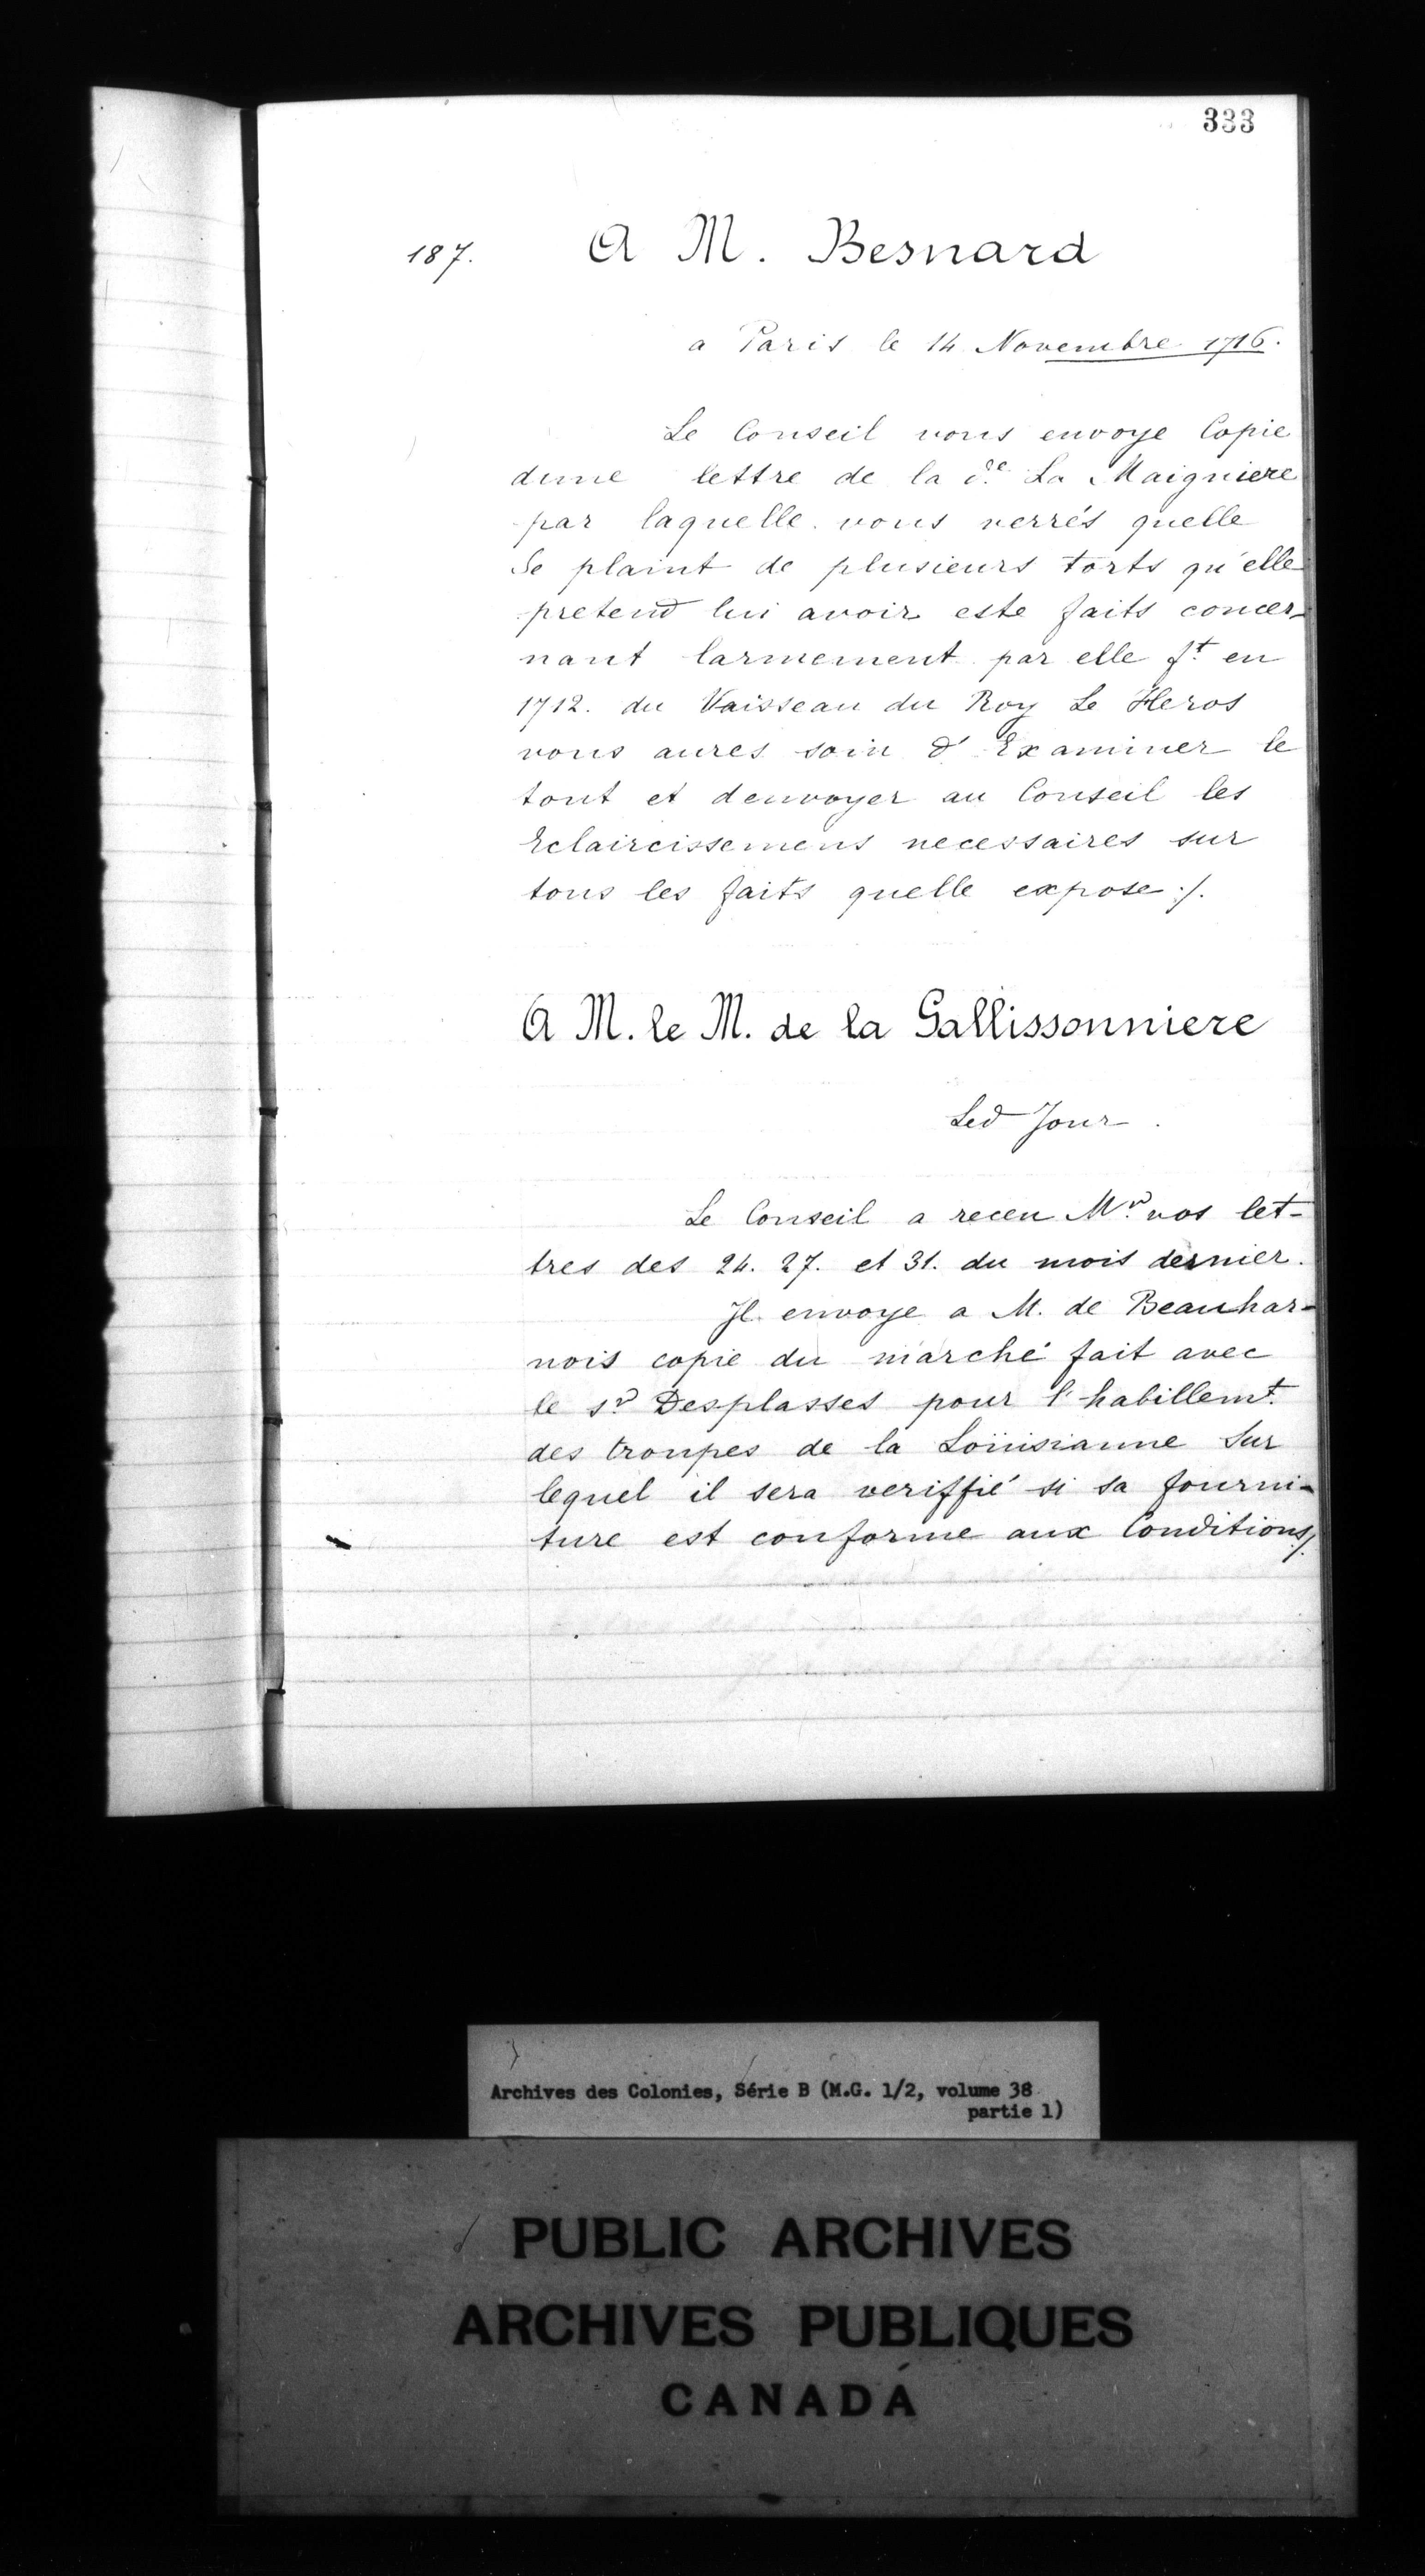 333
187. A M. Besnard
a Paris le 14 Novembre 1716.
Le Conseil vous envoye Copie
dune lettre de la de. La Maigniere
par laquelle vous verrés quelle
Se plaint de plusieurs torts qu'elle
pretend lui avoir este faits concer-
nant larmement par elle ft. en
1712. du Vaisseau du Roy Le Heros
vous aures soin d'Examiner le
tout et denvoyer au Conseil les
Eclaircissemens necessaires sur
tous les faits quelle expose ./.
A M. le M. de la Gallissonniere
Led Jour.
Le Conseil a receu Mr. vos let-
tres des 24. 27. et 31. du mois dernier.
Il envoye a M. de Beauhar-
nois copie du marché fait avec
le sr Desplasses pour l'habillemt.
des troupes de la Loüisianne Sur
lequel il sera veriffié si sa fourni-
ture est conforme aux Conditions ./.
Archives des Colonies, Série B (M.G. 1/2, volume 38
partie 1)
PUBLIC ARCHIVES
ARCHIVES PUBLIQUES
CANADA